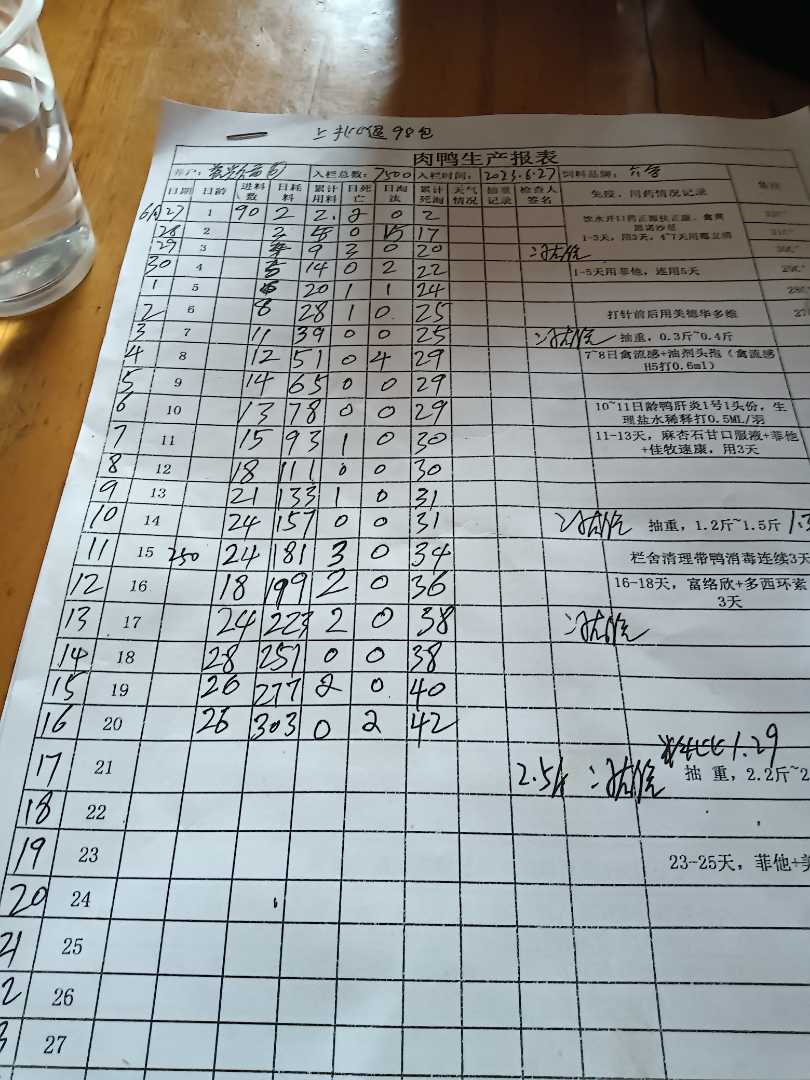 98包
肉鸭生产报表
入栏总数: 7500 入栏时间: 2023.6.27 饲料品牌:
日期 日龄 进料数 日耗料 累计用料 日死亡 日淘汰 累计死淘 天气情况 抽重记录 检查人签名 免疫、用药情况记录 备注
6月27 1 90 2 2 2 0 2
28 2 0 15 17
1-3天，用3天，4~7天用
29 3 9 3 0 20
30 4 5 14 0 2 22 1-5天用菲他，连用5天
1 5 20 1 1 24
2 6 8 28 1 0 25 打针前后用美德华多维
3 7 11 39 0 0 25 抽重，0.3斤~0.4斤
4 8 12 51 0 4 29 7~8日禽流感+油剂头孢（禽流感
H5打0.6ml）
5 9 14 65 0 0 29
6 10 13 78 0 0 29 10~11日龄鸭肝炎1号1头份，生
理盐水稀释打0.5ML/羽
7 11 15 93 1 0 30 11-13天，麻杏石甘口服液+菲他
+佳牧速康，用3天
8 12 18 111 0 0 30
9 13 21 133 1 0 31
10 14 24 157 0 0 31 抽重，1.2斤~1.5斤
11 15 250 24 181 3 0 34 栏舍清理带鸭消毒连续3天
12 16 18 199 2 0 36 16-18天，富络欣+多西环素
3天
13 17 24 223 2 0 38
14 18 28 251 0 0 38
15 19 26 277 2 0 40
16 20 26 303 0 2 42
1.29
17 21 2.5 抽 重，2.2斤~2
18 22
19 23 23-25天，菲他+美
20 24
21 25
2 26
3 27